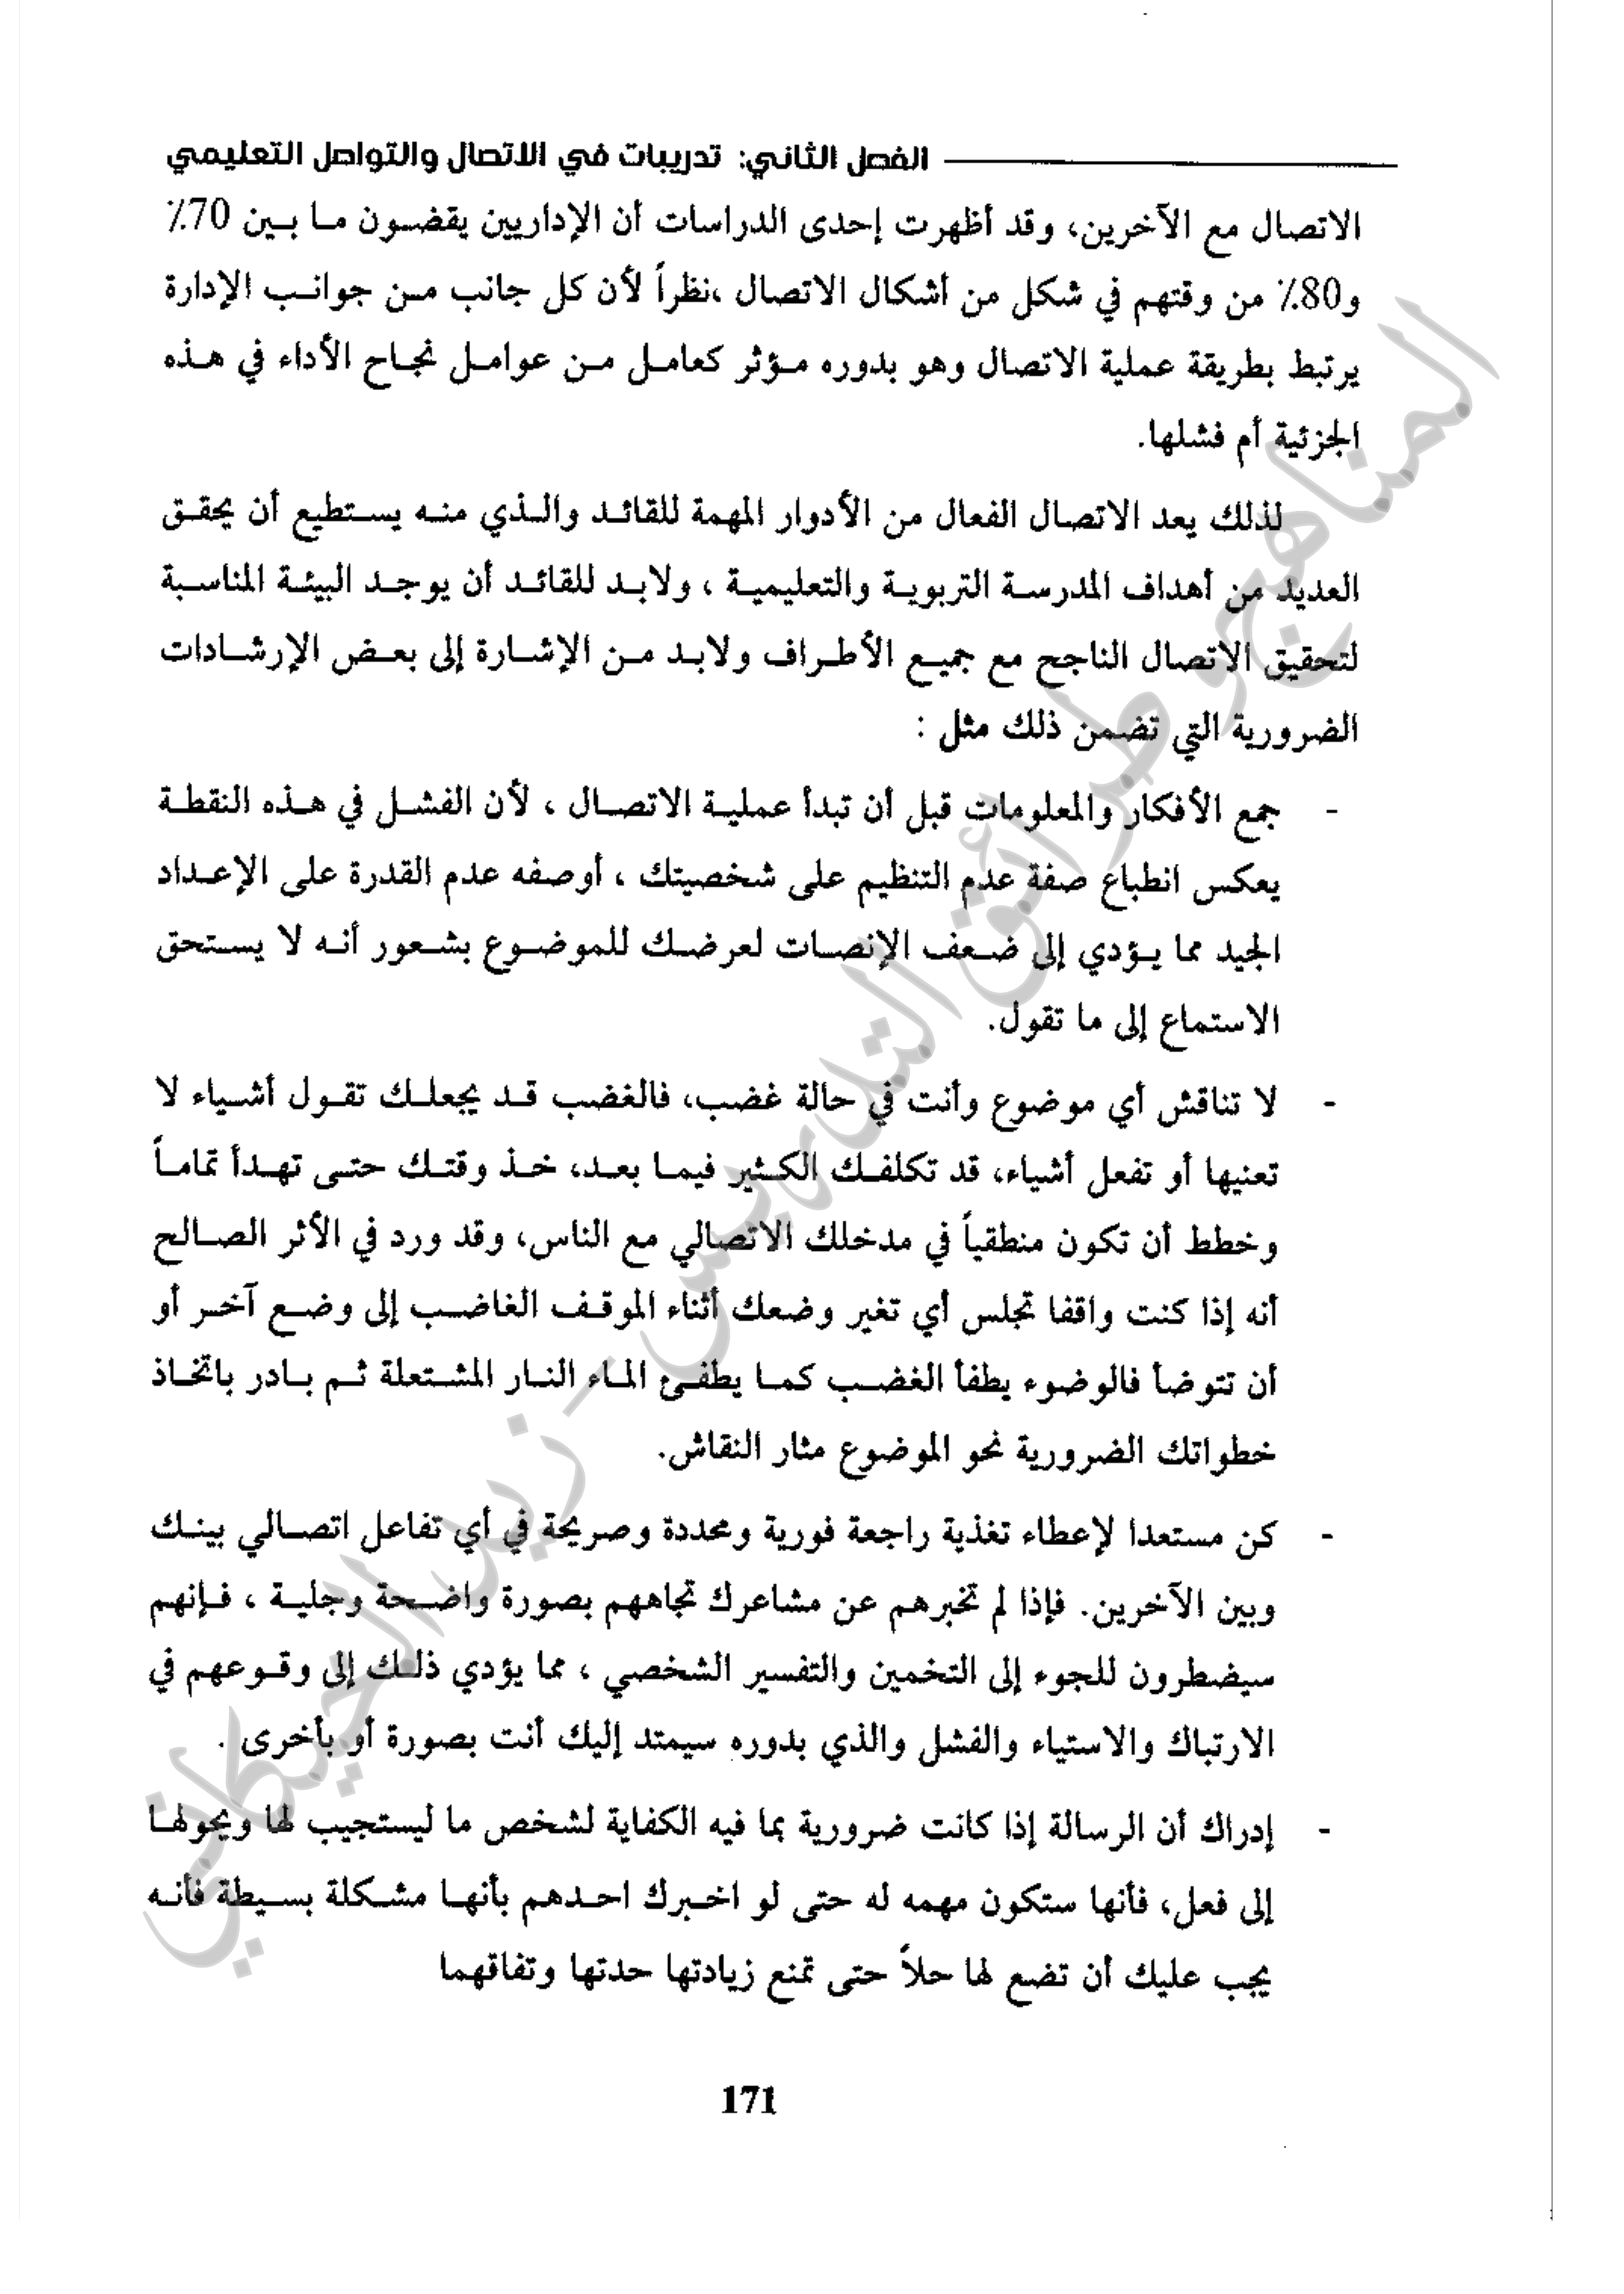 الفصل الثاني: تدريبات في الاتصال والتواصل التعليمي
الاتصال مع الآخرين، وقد أظهرت إحدى الدراسات أن الإداريين يقضون ما بين 70٪
و80٪ من وقتهم في شكل من أشكال الاتصال ،نظراً لأن كل جانب من جوانب الإدارة
يرتبط بطريقة عملية الاتصال وهو بدوره مؤثر كعامل من عوامل نجاح الأداء في هذه
الجزئية أم فشلها.
لذلك يعد الاتصال الفعال من الأدوار المهمة للقائد والذي منه يستطيع أن يحقق
العديد من أهداف المدرسة التربوية والتعليمية ، ولابد للقائد أن يوجد البيئة المناسبة
لتحقيق الاتصال الناجح مع جميع الأطراف ولابد من الإشارة إلى بعض الإرشادات
الضرورية التي تضمن ذلك مثل :
- جمع الأفكار والمعلومات قبل أن تبدأ عملية الاتصال ، لأن الفشل في هذه النقطة
يعكس انطباع صفة عدم التنظيم على شخصيتك ، أوصفه عدم القدرة على الإعداد
الجيد مما يؤدي إلى ضعف الإنصات لعرضك للموضوع بشعور أنه لا يستحق
الاستماع إلى ما تقول.
- لا تناقش أي موضوع وأنت في حالة غضب، فالغضب قد يجعلك تقول أشياء لا
تعنيها أو تفعل أشياء، قد تكلفك الكثير فيما بعد، خذ وقتك حتى تهدأ تماماً
وخطط أن تكون منطقياً في مدخلك الاتصالي مع الناس، وقد ورد في الأثر الصالح
أنه إذا كنت واقفا تجلس أي تغير وضعك أثناء الموقف الغاضب إلى وضع آخر أو
أن تتوضأ فالوضوء يطفأ الغضب كما يطفئ الماء النار المشتعلة ثم بادر باتخاذ
خطواتك الضرورية نحو الموضوع مثار النقاش.
- كن مستعدا لإعطاء تغذية راجعة فورية ومحددة وصريحة في أي تفاعل اتصالي بينك
وبين الآخرين. فإذا لم تخبرهم عن مشاعرك تجاههم بصورة واضحة وجلية ، فإنهم
سيضطرون للجوء إلى التخمين والتفسير الشخصي ، مما يؤدي ذلك إلى وقوعهم في
الارتباك والاستياء والفشل والذي بدوره سيمتد إليك أنت بصورة أو بأخرى .
- إدراك أن الرسالة إذا كانت ضرورية بما فيه الكفاية لشخص ما ليستجيب لها ويحولها
إلى فعل، فأنها ستكون مهمه له حتى لو اخبرك احدهم بأنها مشكلة بسيطة فأنه
يجب عليك أن تضع لها حلاً حتى تمنع زيادتها حدتها وتفاقهما
171
المناهج وطرائق التدريس - زيد الخيكاني